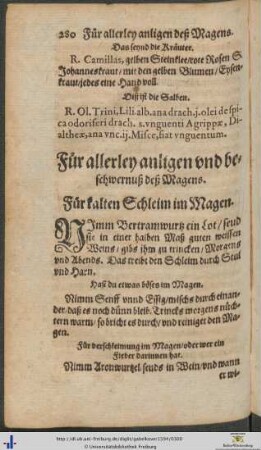 280 Für allerley anligen deß Magens.
Das seynd die Kräuter.
R. Camillas, gelben Steinklee/rote Rosen S.
Johanneskraut/mit den gelben Blumen/Eysen-
kraut/jedes eine Hand voll.
Diß ist die Salben.
R. Ol. Trini, Lili. alb. ana drach.j. olei de spi-
ca odoriferi drach. s. vnguenti Agrippæ, Di-
altheæ, ana vnc. ij. Misce, fiat vnguentum.
Für allerley anligen vnd be-
schwernuß deß Magens.
Für kalten Schleim im Magen.
NImm Bertramwurtz ein Lot/seud
sie in einer halben Maß guten weissen
Weins/gibs ihm zu trincken/Morgens
vnd Abends. Das treibt den Schleim durch Stul
vnd Harn.
Hast du etwas böses im Magen.
Nimm Senff vnnd Essig/mischs durch einan-
der/daß es noch dünn bleib. Trincks morgens nüch-
tern warm/so bricht es durch/vnd reiniget den Ma-
gen.
Für verschleimung im Magen/oder wer ein
Fieber darinnen hat.
Nimm Aronwurtzel seuds in Wein/vnd wann
er wi-
© Universitätsbibliothek Freiburg